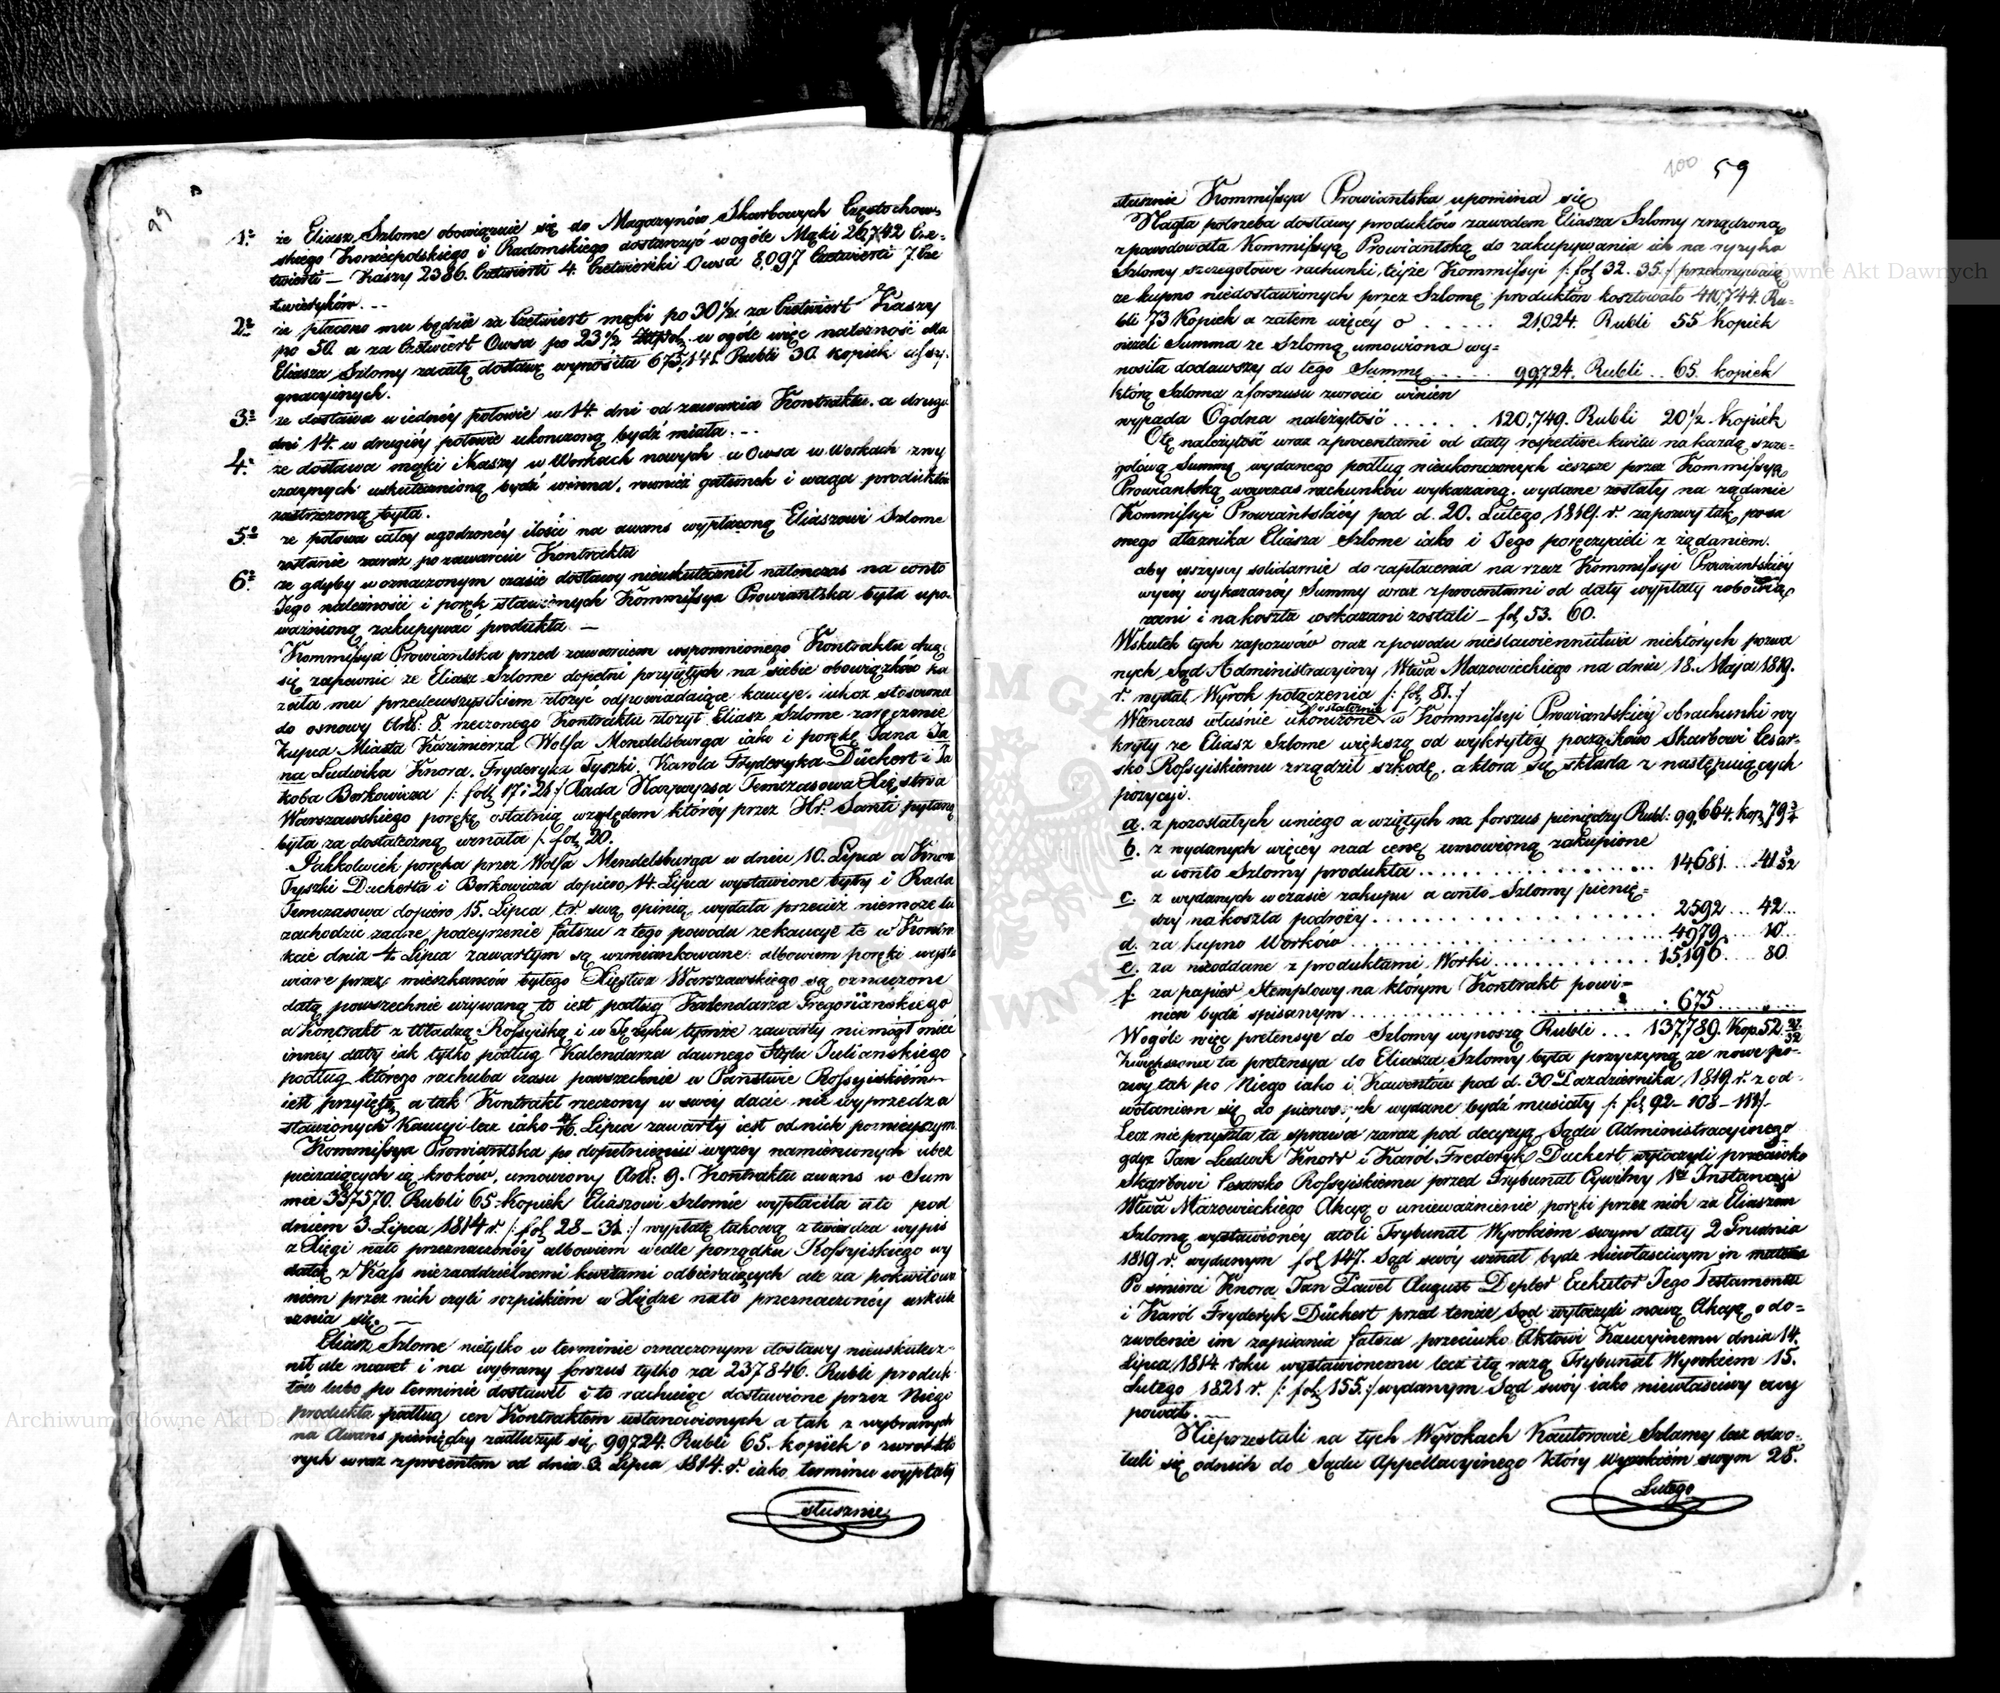 99
1° że Eliasz Szlome obowiązuie się do Magazynów Skarbowych Częstochow-
skiego Koniecpolskiego i Radomskiego dostarczyć w ogóle Mąki 20,742 Cze-
twierti — Kaszy 2386. Czetwierti 4. Czetwieriki Owsa 8,097 Czetwierti 7. Cze
twieryków. —
2° że płacono mu będzie za Czetwiert mąki po 30 1/2 za Czetwiert Kaszy
po 50. a za Czetwiert Owsa po 23 1/2 w ogóle więc należność dla
Eliasza Szlomy za całą dostawę wynosiła 675,141. Rubli 30. kopiek assy-
gnacyinych.
3° że dostawa w iednéy połowie w 14. dni od zawarcia Kontraktu. a drugie
dni 14. w drugiéy połowie ukończoną bydź miała. —
4° że dostawa mąki i Kaszy w Workach nowych a Owsa w Workach zwy
czaynych uskutecznioną bydź winna, również gatunek i waga produktów
zastrzeżoną była.
5° że połowa całey ugodzonéy ilości na awans wypłaconą Eliaszowi Szlome
zostanie zaraz po zawarciu Kontraktu
6° że gdyby w oznaczonym czasie dostawy nieuskutecznił natenczas na conto
Jego należności i poręk stawionych Kommissya Prowiantska była upo-
ważnioną zakupywać produkta —
Kommissya Prowiantska przed zawarciem wspomnionego Kontraktu chcąc
się zapewnić że Eliasz Szlome dopełni przyiętych na siebie obowiązków ka
zała mu przedewszystkiem złożyć odpowiadaiące kaucye. iakoż stosownie
do osnowy Art: 8. rzeczonego Kontraktu złożył Eliasz Szlome zaręczenie
Kupca Miasta Kazimierza Wolfa Mendelsburga iako i porękę Jana Ja
na Ludwika Knora. Fryderyka Tyszki. Karola Fryderyka Dückert i Ja
koba Berkowicza /: fol. 17 i 21 :/ Rada Naywyższa Temczasowa Xięstwa
Warszawskiego porękę ostatnią względem któréy przez Hr. Santi pytaną
była za dostateczną uznała /: fol. 20.
Jakkolwiek poręka przez Wolfa Mendelsburga w dniu 10. Lipca a Knora
Tyszki Duckerta i Berkowicza dopiero 14. Lipca wystawione były i Rada
Temczasowa dopiero 15. Lipca t.r. swą opinią wydała przecież niemoże tu
zachodzić żadne podeyrzenie fałszu z tego powodu że kaucye te w Kontra
kcie dnia 4. Lipca zawartym są wzmiankowane: albowiem poręki wysta
wiane przez mieszkańców byłego Xięstwa Warszawskiego są oznaczone
datą powszechnie używaną to iest podług Kalendarza Gregoriańskiego
a Kontrakt z Władzą Rossyiską i w Języku tymże zawarty niemógł mieć
inney daty iak tylko podług Kalendarza dawnego Stylu Juliańskiego
podług którego rachuba czasu powszechnie w Państwie Rossyiskiém
iest przyiętą, a tak Kontrakt rzeczony w swey dacie nie wyprzedza
stawionych Kaucyi lecz iako 4/16. Lipca zawarty iest od nich poznieyszym.
Kommissya Prowiantska po dopełnieniu wyżey namienionych ubez
pieczaiących ią kroków, umowiony Art: 9. Kontraktu awans w Sum
mie 337570. Rubli 65. kopiek Eliaszowi Szlomie wypłaciła a to pod
dniem 3. Lipca 1814 r. /: fol. 28 – 31 :/ wypłatę takową ztwierdza wypis
z Xięgi na to przeznaczonéy albowiem wedle porządku Rossyiskiego wy
datek z Kass niezaoddzielnemi kwitami odbieraiących ale za pokwitowa
niem przez nich czyli rozpiskiém w Xiędze na to przeznaczonéy uskute
cznia się. —
Eliasz Szlome nietylko w terminie oznaczonym dostawy nieuskutecz-
nił ale nawet i na wybrany forszus tylko za 237846. Rubli produk-
tów lubo po terminie dostawił i to rachuiąc dostawione przez Niego
produkta podług cen Kontraktem ustanowionych a tak z wybranych
na Awans pieniędzy zadłużył się 99724. Rubli 65. kopiek o zwrot któ
rych wraz z procentem od dnia 3. Lipca 1814. r. iako terminu wypłaty
słusznie
100 59
słusznie Kommissya Prowiantska upomina się
Nagła potrzeba dostawy produktów zawodem Eliasza Szlomy zrządzona
spowodowała Kommissyą Prowiantską do zakupywania ich na ryzyko
Szlomy szczegółowe rachunki teyże Kommissyi /: fol. 32. 35. :/ przekonywaią
że kupno niedostawionych przez Szlomę produktów kosztowało 410,744. Ru-
bli 73 Kopiek a zatem więcéy o ..... 21,024. Rubli 55 Kopiek
niżeli Summa ze Szlomą umowiona wy-
nosiła dodawszy do tego Summę ..... 99,724. Rubli .. 65. kopiek
którą Szloma z forszusu zwrocić winien
wypada Ogólna należytość ...... 120,749. Rubli 20 1/2. Kopiek
Otę należytość wraz z procentami od daty respective kwitu na każdą szcze-
gołową Summę wydanego podług nieukończonych ieszcze przez Kommissyą
Prowiantską wowczas rachunków wykazaną. wydane zostały na żądanie
Kommissyi Prowiantskiéy pod d. 20. Lutego 1819. r. zapozwy tak prza
mego dłużnika Eliasza Szlome iako i Jego poręczycieli z żądaniem.
aby wszyscy solidarnie do zapłacenia na rzecz Kommissyi Prowiantskiéy
wyżéy wykazanéy Summy wraz z procentami od daty wypłaty zobowią
zani i na koszta wskazani zostali — fol. 53. 60.
Wskutek tych zapozwów oraz z powodu niestawiennictwa niektórych pozwa
nych Sąd Administracyiny Wtwa Mazowieckiego na dniu 18. Maja 1819.
r. wydał Wyrok połączenia /: fol. 81. :/
Wowczas właśnie ukończone ostatecznie w Kommissyi Prowiantskiéy obrachunki wy
kryły że Eliasz Szlome większą od wykrytey początkowo Skarbowi Cesar-
sko Rossyiskiemu zrządził szkodę, a która się składa z następuiących
pozycyi.
a. z pozostałych u niego a wziętych na forszus pieniędzy Rubl: 99,664. kop. 79 3/4
b. z wydanych więcey nad cenę umowioną zakupione
a conto Szlomy produkta .......... 14,681 .... 41 5/32
c. z wydanych w czasie zakupu a conto Szlomy pienię-
dzy na koszta podróży .......... 2592 ... 42 ..
d. za kupno Worków .......... 4979 .... 10 ..
e. za nieoddane z produktami Worki .......... 15,196 .... 80
f. za papier Stemplowy na którym Kontrakt powi-
nien bydź spisanym .......... 675 ......
Wogóle więc pretensye do Szlomy wynoszą Rubli ... 137,789. Kop. 52. 27/32
Zwiększona ta pretensya do Eliasza Szlomy była przyczyną że nowe po-
zwy tak po Niego iako i Kawentów pod d. 30 Pazdziernika 1819. r. z od-
wołaniem się do pierwszych wydane bydź musiały /: fol. 92 – 108 – 111 :/
Lecz nie przyszła ta sprawa zaraz pod decyzyą Sądu Administracyinego
gdyż Jan Ludwik Knorr i Karól Frederyk Duckert wytoczyli przeciwko
Skarbowi Cesarsko Rossyiskiemu przed Trybunał Cywilny 1éy Instancyi
Wtwa Mazowieckiego Akcyą o unieważnienie poręki przez nich za Eliaszem
Szlomą wystawionéy atoli Trybunał Wyrokiem swym daty 2 Grudnia
1819 r. wydanym fol. 147. Sąd swóy uznał bydź niewłaściwym in materia
Po śmierci Knora Jan Paweł August Depler Exekutor Jego Testamentu
i Karól Fryderyk Dückert przed tenże Sąd wytoczyli nową Akcyą o do-
zwolenie im zapisania fałszu przeciwko Aktowi Kaucyinemu dnia 14.
Lipca 1814. roku wystawionemu lecz i tą razą Trybunał Wyrokiem 15.
Lutego 1821 r. /: fol. 155. :/ wydanym Sąd swóy iako niewłaściwy
powáł. —
Nieprzestali na tych Wyrokach Kautorowie Szlamy lecz odwo-
łali się od nich do Sądu Appellacyinego który Wyrokiém swym 28.
Lutego